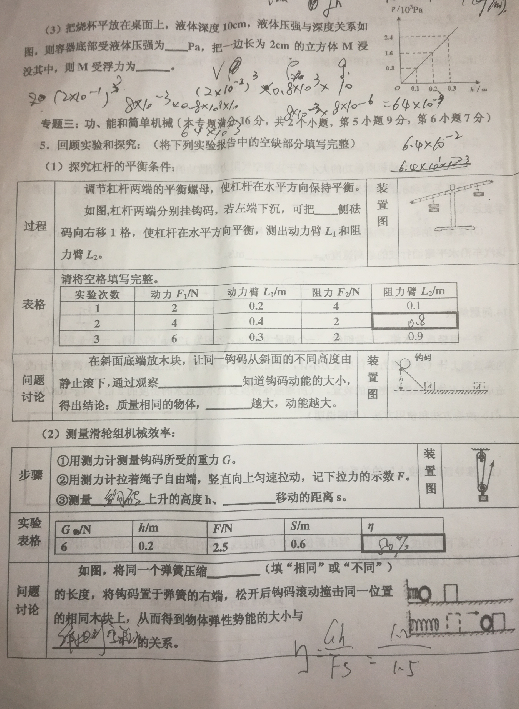 (3) 把烧杯平放在桌面上，液体深度10cm，液体压强与深度关系如
图，则容器底部受液体压强为____Pa，把一边长为 2cm 的立方体 M 浸
没其中，则 M 受浮力为______。
2.4
1.6
0.8
0.1 0.2 0.3 h/m
专题三：功、能和简单机械（本专题满分16分，共2个小题，第5小题9分；第6小题7分）
5．回顾实验和探究：（将下列实验报告中的空缺部分填写完整）
6.4×10⁻²
（1）探究杠杆的平衡条件：
过程
调节杠杆两端的平衡螺母，使杠杆在水平方向保持平衡。
如图,杠杆两端分别挂钩码，若左端下沉，可把____侧砝
码向右移 1 格，使杠杆在水平方向平衡，测出动力臂 L₁和阻
力臂 L₂。
装置图
表格
请将空格填写完整。
实验次数 动力 F₁/N 动力臂 L₁/m 阻力 F₂/N 阻力臂 L₂/m
1 2 0.2 4 0.1
2 4 0.4 2 0.8
3 6 0.3 2 0.9
问题讨论
在斜面底端放木块，让同一钩码从斜面的不同高度由
静止滚下，通过观察____________知道钩码动能的大小，
得出结论：质量相同的物体，______越大，动能越大。
装置图
钩码
（2）测量滑轮组机械效率：
步骤
①用测力计测量钩码所受的重力 G。
②用测力计拉着绳子自由端，竖直向上匀速拉动，记下拉力的示数 F。
③测量 钩码 上升的高度 h、________移动的距离 s。
装置图
实验表格
G/N h/m F/N S/m η
6 0.2 2.5 0.6 80%
问题讨论
如图，将同一个弹簧压缩________（填“相同”或“不同”）
的长度，将钩码置于弹簧的右端，松开后钩码滚动撞击同一位置
的相同木块上，从而得到物体弹性势能的大小与
的关系。
η = Gh/FS = 1.2/1.5